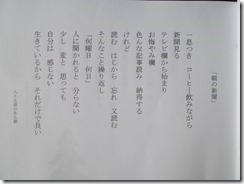 「朝の新聞」
一息つき　コーヒー飲みながら
新聞見る
テレビ欄から始まり
お悔やみ欄
色んな記事読み　納得する
けれど
読む　はじから　忘れ　又読む
そんなこと繰り返し
「何曜日　何日」
人に聞かれると　分らない
少し　変と　思っても
自分は　感じない
生きているから　それだけで良い